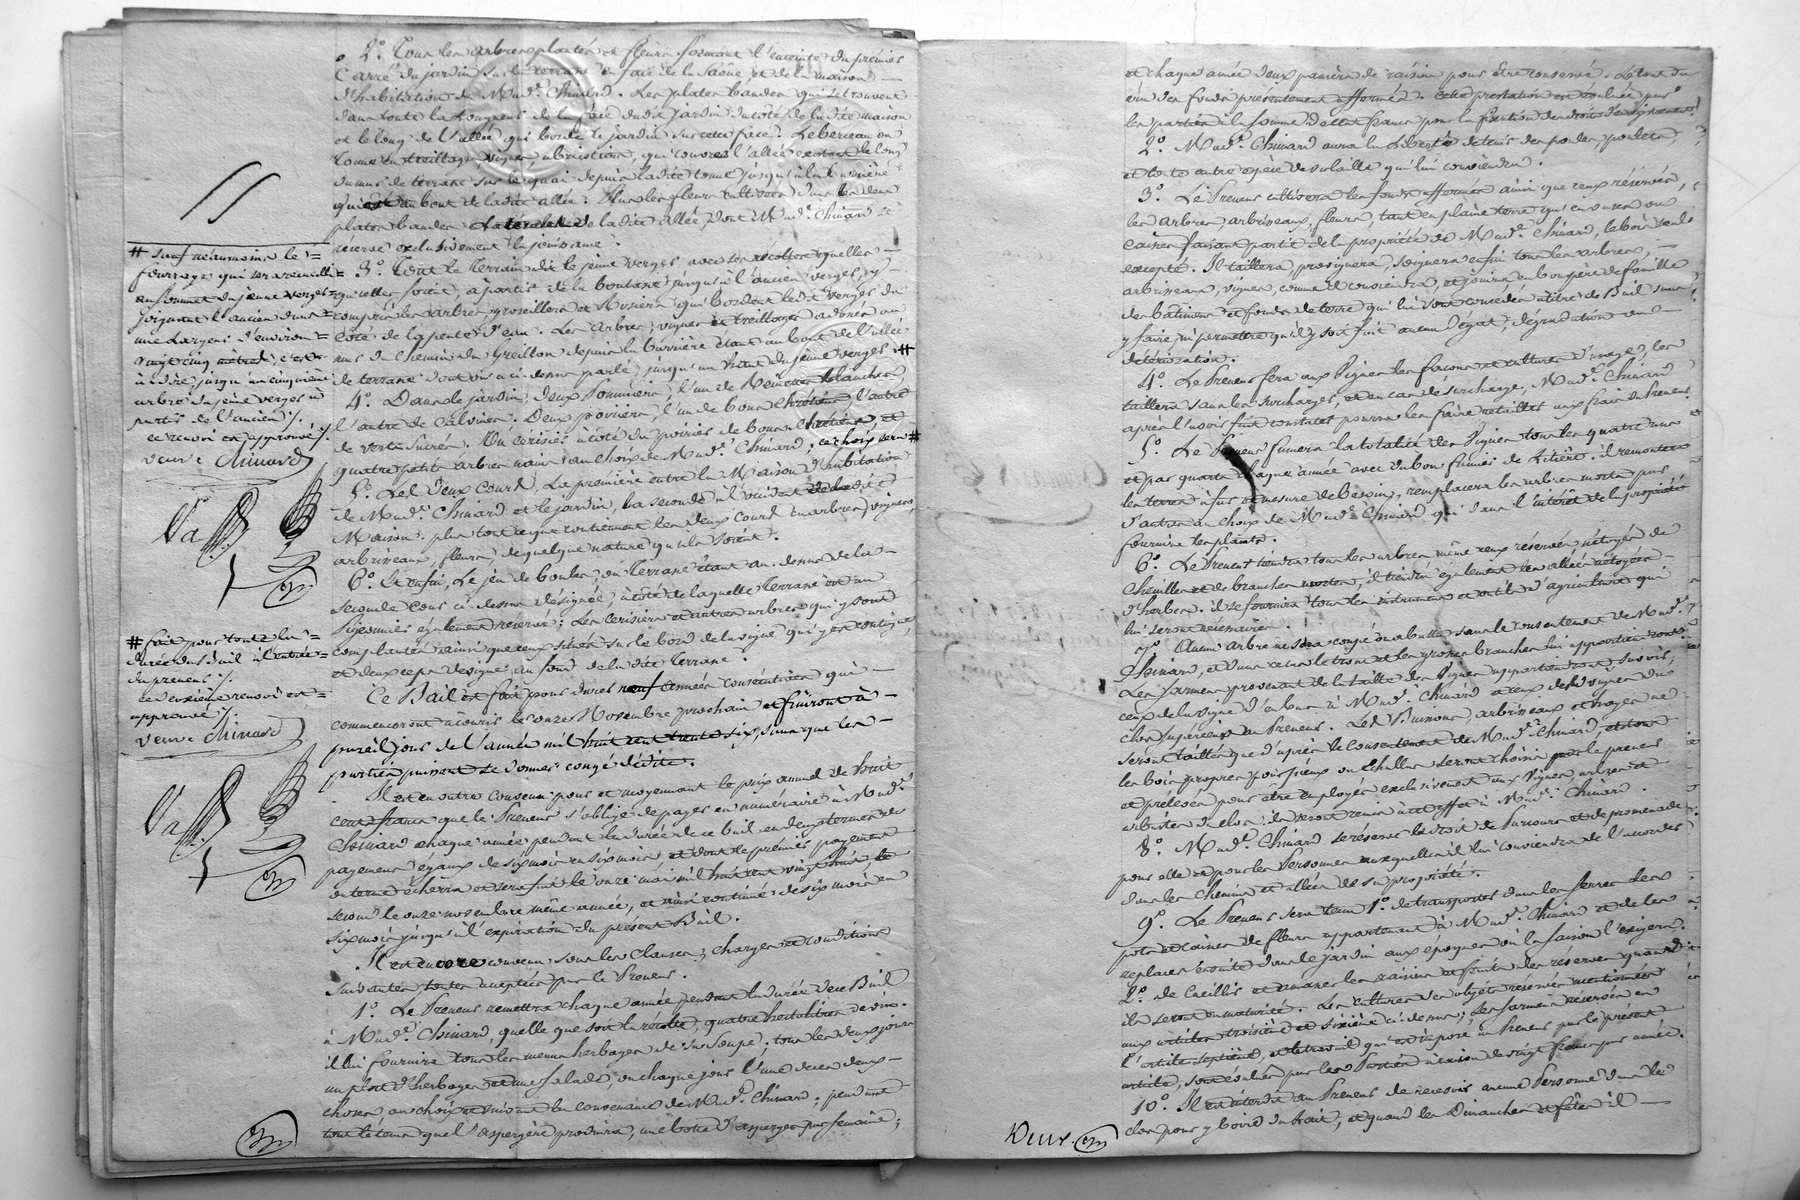 2.° Tous les arbres plantés et fleurs formant l'enceinte du premier
Carré du jardin sur la terrasse en face de la Saône et de la maison
d'habitation de Mad.e Chinard. Les plates bandes qui se trouvent
dans toute la longueur de la face dudit jardin du côté de la dite maison
et le long de l'allée qui borde le jardin sur cette face. Le berceau ou
tonne en treillages, vignes, arbrisseaux, qui couvre l'allée existant le long
du mur de terrasse sur le quai depuis ladite tonne jusqu'à la barrière
qui est au bout de ladite allée. Plus les fleurs cultivées dans les deux
plates bandes latérales de ladite allée dont Mad.e Chinard se
réserve exclusivement la jouissance.
3.° Tout le terrain dit le jeune verger avec ses récoltes quelles
qu'elles soient, à partir de la boutasse jusqu'à l'ancien verger, y
compris les arbres, groseillers et rosiers qui bordent ledit verger du
côté de la pente d'eau. Les arbres, vignes et treillages adossés au
mur du chemin du Greillon depuis la barrière étant au bout de l'allée
de terrasse dont on a ci-dessus parlé, jusqu'au haut du jeune verger #
4.° Dans le jardin, deux pommiers, l'un de Reinette blanche
l'autre de Calvine. Deux poiriers, l'un de bons chrétiens l'autre
de verte sucrée. Un cerisier à côté du poirier de bons chrétiens et
quatre petits arbres nains au choix de Mad.e Chinard, ce choix sera #
5.° Les deux Cours, la première entre la Maison d'habitation
de Mad.e Chinard et le jardin, la seconde à l'occident de ladite
Maison. plus tout ce que contiennent les deux cours en arbres, vignes,
arbrisseaux, fleurs de quelque nature qu'ils soient.
6.° Et enfin, le jeu de boules, en terrasse étant au-dessus de la
seconde cour ci-dessus désignée, à côté de laquelle terrasse est un
également réservé; Les cerisiers et autres arbres qui y sont
complantés ainsi que ceux situés sur le bord de la vigne qui y est contiguë,
et deux ceps de vigne au fond de la dite terrasse.
Ce Bail est fait pour durer neuf années consécutives qui
commenceront à courir le onze Novembre prochain et finiront à
pareil jour de l'année mil huit cent trente six, sans que les
parties puissent se donner congé dédite.
Il est en outre convenu pour et moyennant le prix annuel de huit
cents francs que le Preneur s'oblige de payer en numéraire à Mad.e
Chinard chaque année pendant la durée de ce bail en deux termes de
payement égaux de six mois en six mois et dont le premier payement
ou terme écherra et sera fait le onze mai mil huit cent vingt huit, le
second le onze novembre même année, et ainsi continué de six mois en
six mois jusqu'à l'expiration du présent Bail.
Il est encore convenu sous les clauses, charges et conditions
suivantes toutes acceptées par le Preneur.
1.° Le Preneur remettra chaque année pendant la durée de ce Bail
à Mad.e Chinard, quelle que soit la récolte, quatre hectolitres de vin.
il lui fournira tous les menus herbages de sa soupe; tous les deux jours
un plat d'herbages et une salade, ou chaque jour l'une de ces deux
choses, au choix et suivant la convenance de Mad.e Chinard; pendant
tout le tems que l'aspergère produira, une botte d'asperges par semaine;
# sauf néanmoins le
fourrage qui sera recueilli
au sommet du jeune verger
joignant l'ancien dans
une largeur d'environ
vingt cinq mètres, c'est-
à-dire, jusqu'au cinquième
arbre du jeune verger à
partir de l'ancien ./.
ce renvoi est approuvé ./.
veuve Chinard
# fait pour toute la
durée du Bail à l'entrée
du preneur ./.
ce deuxième renvoi est
approuvé ./.
veuve Chinard
et chaque année deux paniers de raisins pour être conservés. Le tout du
crû des fonds présentement affermés. cette prestation est évaluée par
les parties à la somme de cent francs pour la fixation des droits d'enregistrement
2.° Mad.e Chinard aura la liberté de tenir des poules, poulets,
et toute autre espèce de volaille qui lui conviendra.
3.° Le Preneur cultivera les fonds affermés ainsi que ceux réservés,
les arbres, arbrisseaux, fleurs, tant en pleine terre qu'en vases ou
caisses faisant partie de la propriété de Mad.e Chinard, le bois seul
excepté. Il taillera, provignera, soignera enfin tous les arbres,
arbrisseaux, vignes, comme il conviendra, et jouira en bon père de famille
des batimens et fonds de terre qui lui sont concédés à titre de Bail sans
y faire, ni permettre qu'il y soit fait aucun dégat, dégradation ou
détérioration.
4.° Le Preneur fera aux Vignes les façons et cultures d'usage, les
taillera sans les surcharger, et en cas de surcharge, Mad.e Chinard
après l'avoir fait constater pourra les faire retailler aux frais du Preneur.
5.° Le Preneur fumera la totalité des Vignes tous les quatre ans
et par quarts chaque année avec du bon fumier de Litière; il remontera
les terres à fur et mesure de besoin, remplacera les arbres morts par
d'autres au choix de Mad.e Chinard qui dans l'intérêt de la propriété
fournira les plants.
6.° Le Preneur tiendra tous les arbres même ceux réservés nétoyés de
chenilles et de branches mortes, il tiendra également les allées nétoyées
d'herbes. il se fournira tous les instrumens et outils d'agriculture qui
lui seront nécessaires.
7.° Aucun arbre ne sera coupé ou abattu sans le consentement de Mad.e
Chinard, et dans ce cas le tronc et les grosses branches lui appartiendront.
Les sarmens provenant de la taille des Vignes appartiendront, savoir,
ceux de la vigne d'en bas à Mad.e Chinard et ceux des vignes du
clos supérieur au Preneur. Les Buissons, arbrisseaux et hayes ne
seront taillés que d'après le consentement de Mad.e Chinard, et tous
les bois propres pour pieux ou échallas seront choisis par le preneur
et prélevés pour être employés exclusivement aux vignes, arbres et
arbustes du clos; ils seront remis à cet effet à Mad.e Chinard.
8.° Mad.e Chinard se réserve le droit de parcours et de promenade
pour elle et pour les Personnes auxquelles il lui conviendra de l'accorder
dans les chemins et allées de sa propriété.
9.° Le Preneur sera tenu 1.° de transporter dans les serres les
pots et caisses de fleurs appartenant à Mad.e Chinard et de les
replacer ensuite dans le jardin aux époques où la saison l'exigera.
2.° de Cueillir et ramasser les raisins et fruits des réserves quand
ils seront en maturité. Les cultures des objets réservés mentionnés
aux articles troisième et sixième ci-dessus, les sarmens réservés en
l'article septième, et le travail qui est imposé au Preneur par le présent
article, sont évalués par les Parties à raison de vingt francs par année.
10.° Il est interdit au Preneur de recevoir aucune Personne dans le
clos pour y boire du trait, et quand les Dimanches et fêtes il